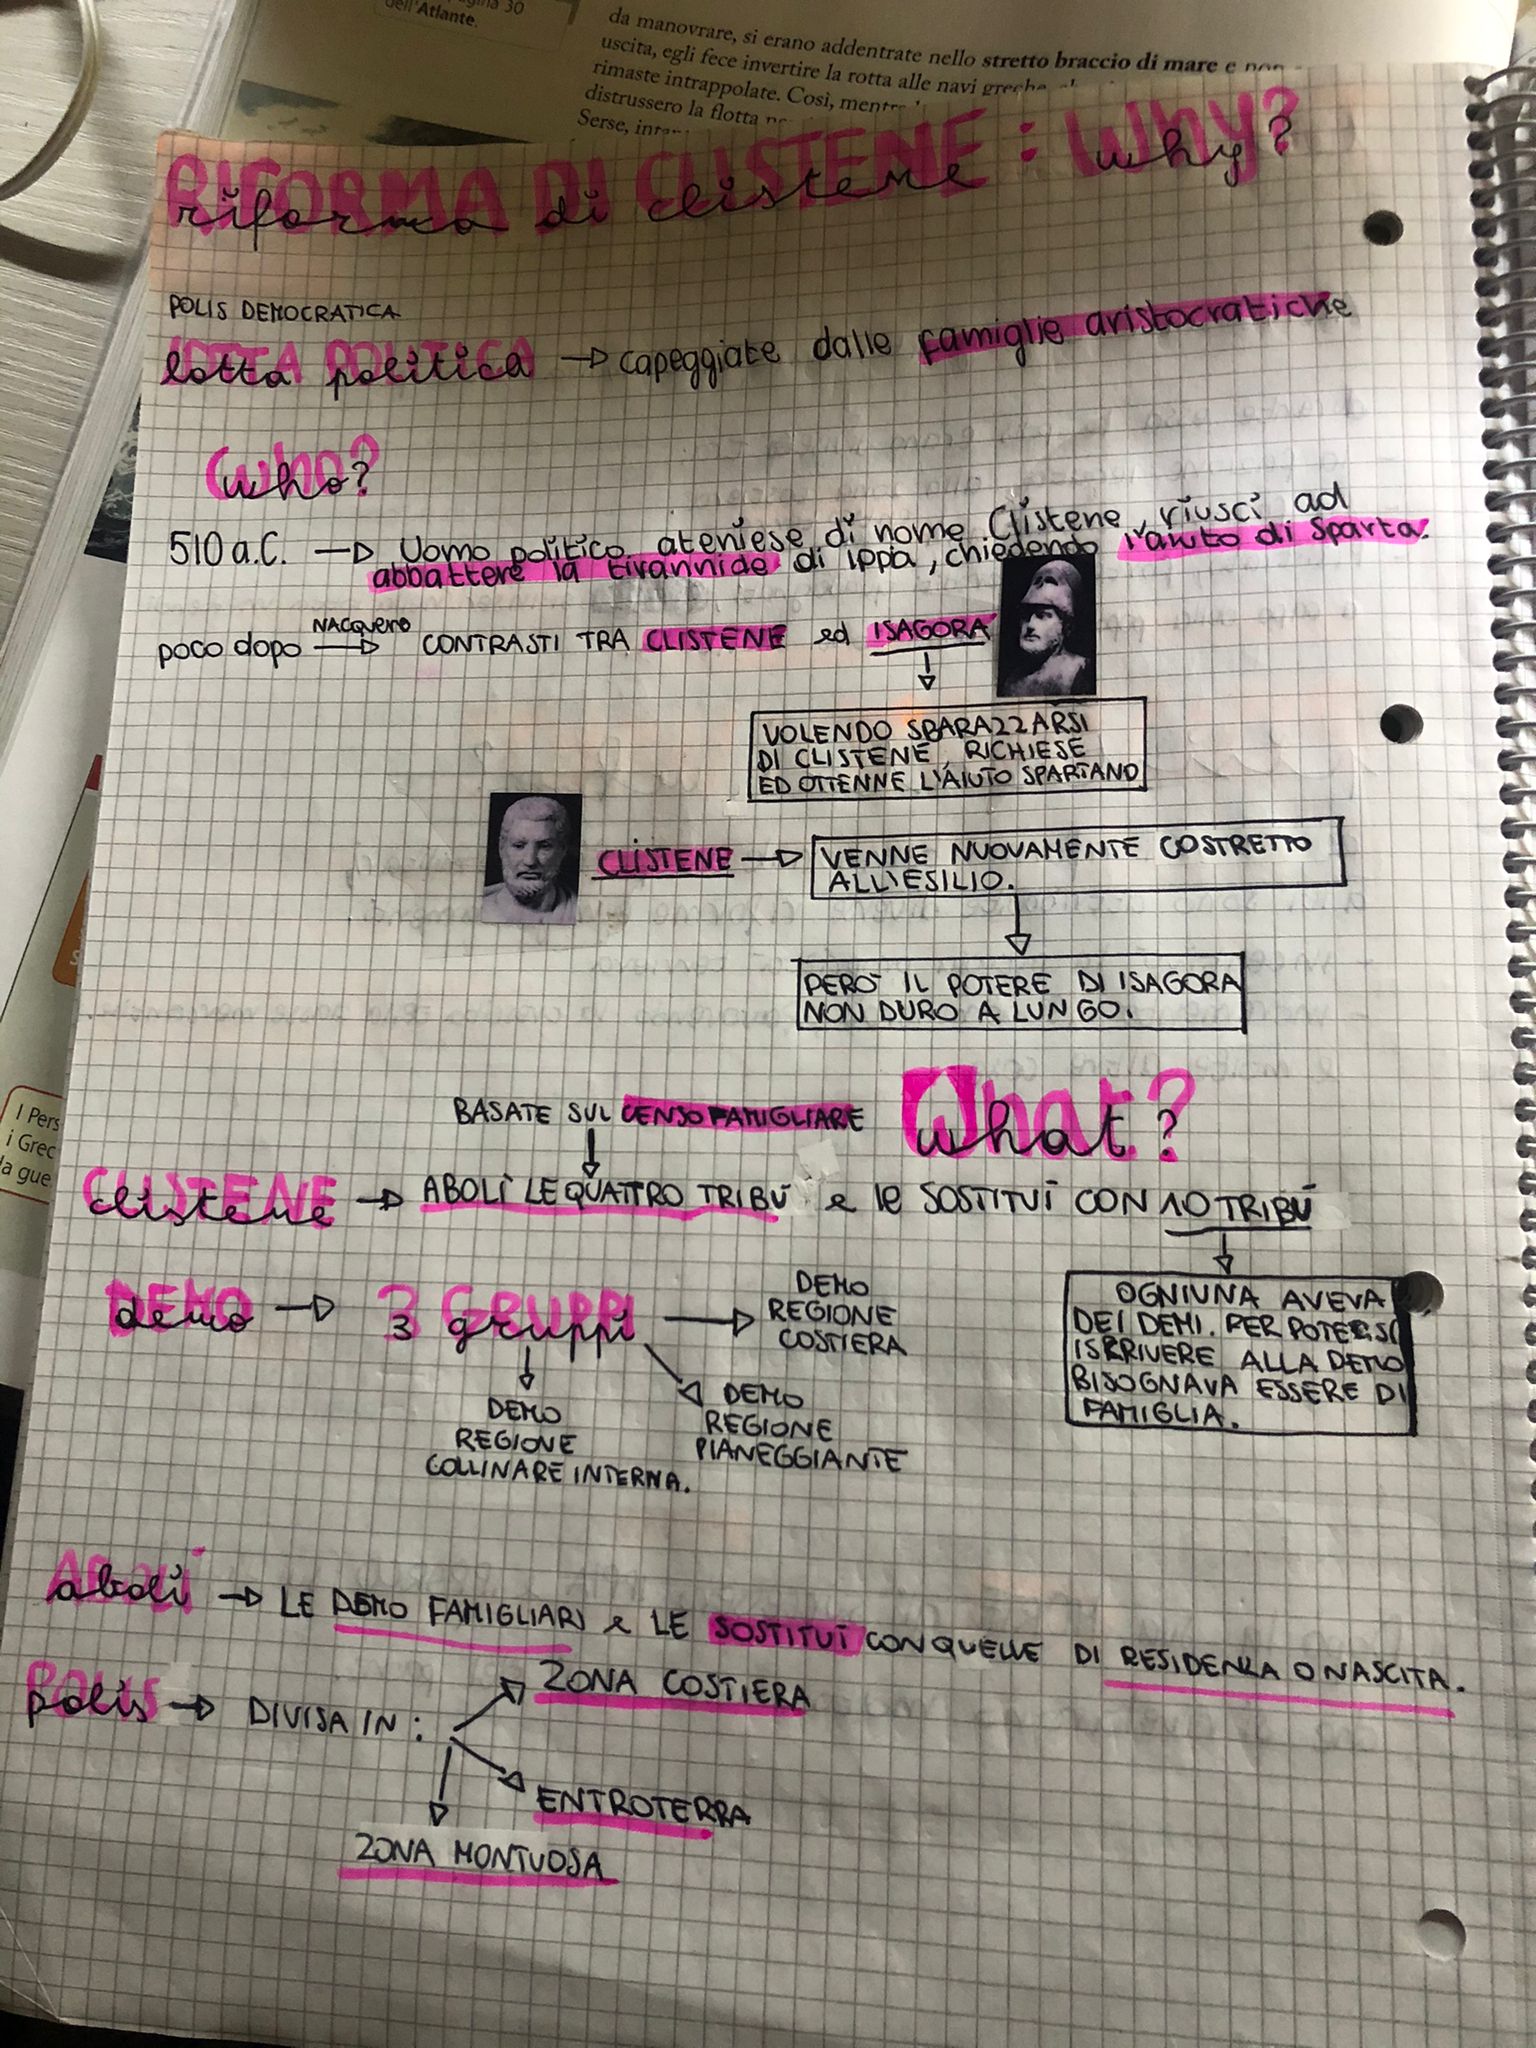 pagina 30
dell'Atlante.
da manovrare, si erano addentrate nello stretto braccio di mare e non
uscita, egli fece invertire la rotta alle navi greche
rimaste intrappolate. Così, mentre
distrussero la flotta
Serse,
RIFORMA DI CLISTENE : WHY?
riforma di clistene why?
POLIS DEMOCRATICA
LOTTA POLITICA
lotta politica → capeggiate dalle famiglie aristocratiche
Who?
who?
510 a.C. → Uomo politico ateniese di nome Clistene, riusci ad
abbattere la tirannide di Ippa, chiedendo l'aiuto di Sparta.
poco dopo NACQUERO → CONTRASTI TRA CLISTENE ed ISAGORA
VOLENDO SBARAZZARSI
DI CLISTENE, RICHIESE
ED OTTENNE L'AIUTO SPARTANO
CLISTENE → VENNE NUOVAMENTE COSTRETTO
ALL'ESILIO.
PERÒ IL POTERE DI ISAGORA
NON DURO A LUNGO.
What?
what?
BASATE SUL CENSO FAMIGLIARE
CLISTENE
clistene → ABOLÌ LE QUATTRO TRIBÙ e le SOSTITUÌ CON 10 TRIBÙ
OGNIUNA AVEVA
DEI DEMI. PER POTERSI
ISCRIVERE ALLA DEMO
BISOGNAVA ESSERE DI
FAMIGLIA.
DEMO → 3 GRUPPI
demo 3 gruppi
DEMO
REGIONE
COSTIERA
DEMO
REGIONE
PIANEGGIANTE
DEMO
REGIONE
COLLINARE INTERNA.
ABOLÌ
abolì → LE DEMO FAMIGLIARI e LE SOSTITUÌ CON QUELLE DI RESIDENZA O NASCITA.
POLIS
polis → DIVISA IN :
ZONA COSTIERA
ENTROTERRA
ZONA MONTUOSA
I Pers
i Grec
la gue